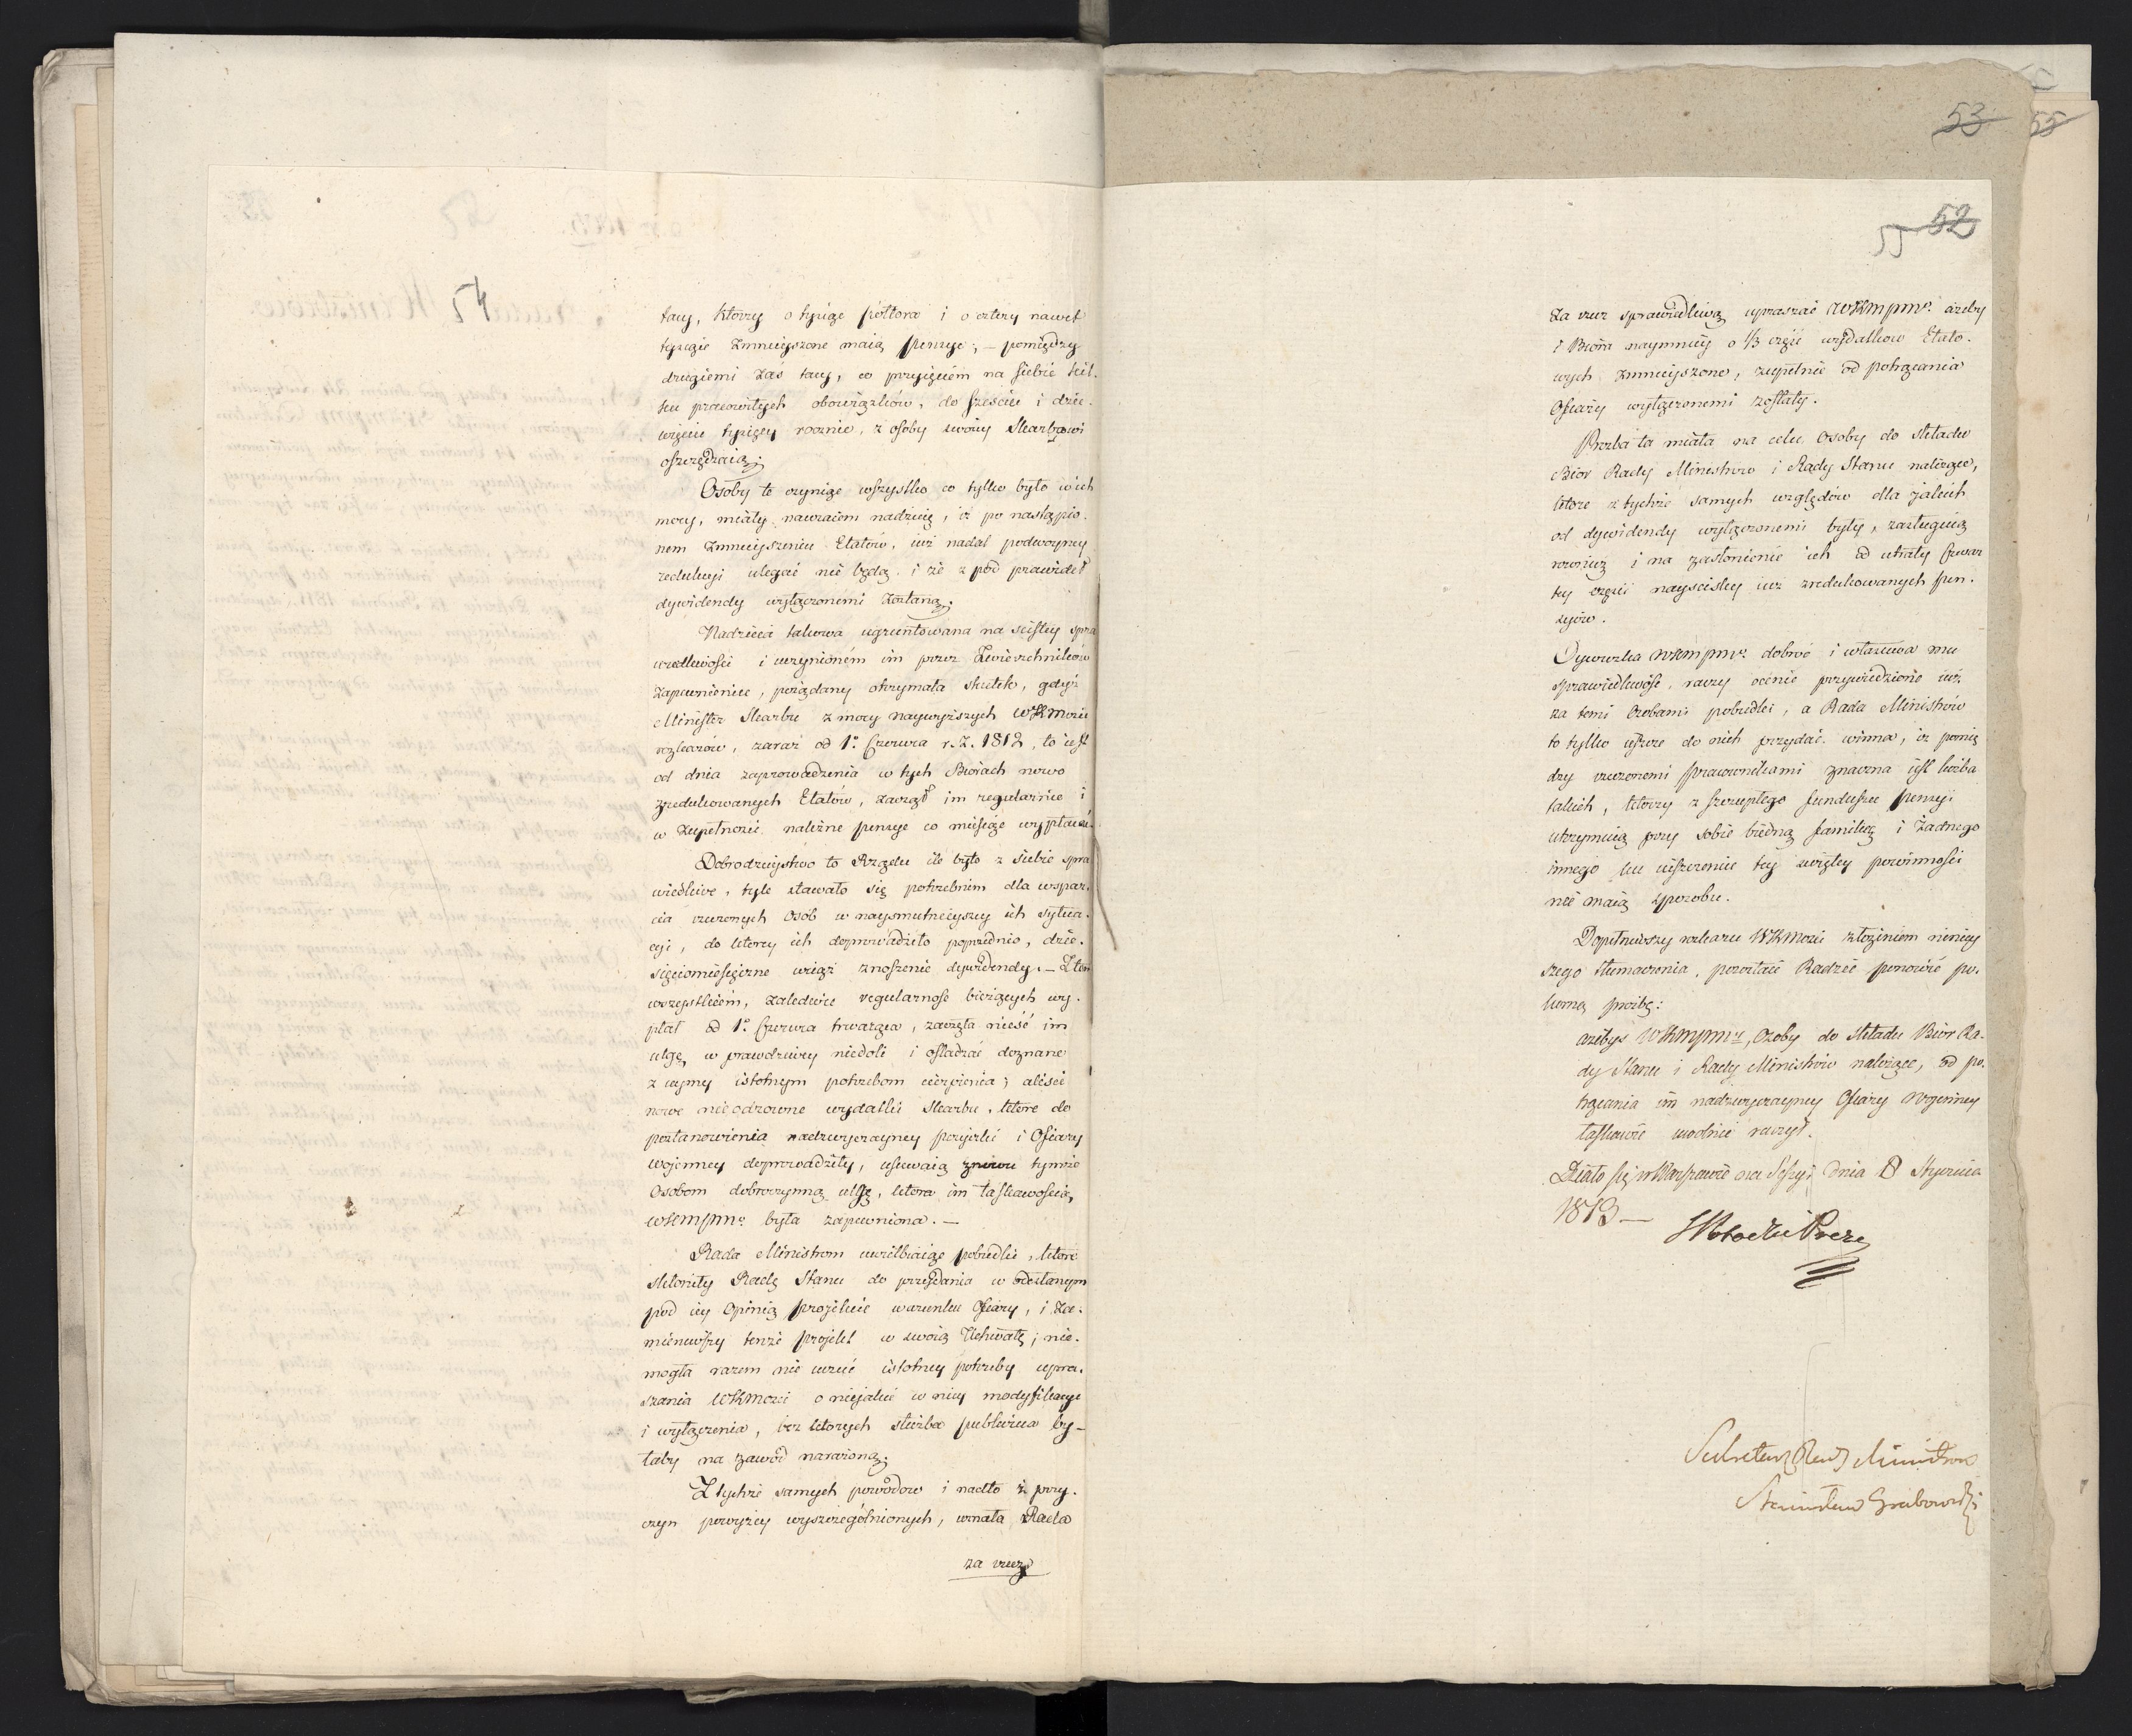 54
tacy, ktorzy o tysiąc półtora i o cztery nawet
tysiącie zmnieyszone maią pensye; – pomiędzy
drugiemi zaś tacy, co przyięciem na siebie kil-
ku pracowitych obowiązków, do sześciu i dzie-
więciu tysięcy rocznie, z osoby swoiey Skarbowi
oszczędzaią.
Osoby te czyniąc wszystko co tylko było w ich
mocy, miały nawzaiem nadzieię, iż po nastąpio-
nem zmnieyszeniu Etatów, iuż nadal podwoyney
redukcyi ulegać nie będą i że z pod prawideł
dywidendy wyłączonemi zostaną.
Nadzieia takowa ugruntowana na scisłey spra
wiedliwości i uczynioném im przez Zwierzchników
zapewnieniu, pożądany otrzymała skutek, gdyż
Minister Skarbu z mocy naywyższych WKMości
rozkazów, zaraz od 1º Czerwca r. z. 1812, to iest
od dnia zaprowadzenia w tych Biórach nowo
zredukowanych Etatów, zaczął im regularnie i
w zupełności należne pensye co miesiąc wypłacać.
Dobrodzieystwo to Rządu ile było z siebie spra
wiedliwe, tyle stawało się potrzebnim dla wspar-
cia rzeczonych osób w naysmutnieyszey ich sytua-
cyi, do ktorey ich doprowadziło poprzednio, dzie-
sięciomiesięczne wciąż znoszenie dywidendy. – Z tem
wszystkiém, zaledwie regularność bieżących wy-
płat od 1º Czerwca trwaiąca, zaczęła nieść im
ulgę w prawdziwey niedoli i osładzać doznane
z uymy istotnym potrzebom cierpienia; aliści
nowe nieodzowne wydatki Skarbu, które do
postanowienia nadzwyczayney pożyczki i Ofiary
woienney doprowadziły, usuwaią znowu tymże
Osobom dobroczynną ulgę, ktora im łaskawością
WKMPMº była zapewniona. –
Rada Ministrow uwielbiaiąc pobudki, które
skłoniły Radę Stanu do przydania w odesłanym
pod iey Opinią projekcie warunku Ofiary, i za-
mieniwszy tenże projekt w swoią Uchwałę; nie-
mogła razem nie uczuć istotney potrzeby upra-
szania WKMości o nieiakie w niey modyfikacye
i wyłączenia, bez ktorych służba publiczna by-
łaby na zawód narażoną.
Z tychże samych powodow i nadto z przy-
czyn powyżey wyszczegółnionych, uznała Rada
za rzecz
53
55
55 52
za rzecz sprawiedliwą upraszać WKMPMº ażeby
i Biora naymniey o 1/3 część wydatkow Etato-
wych zmnieyszone, zupełnie od potrącania
Ofiary wyłączonemi zostały.
Prozba ta miała na celu Osoby do składu
Bior Rady Ministrow i Rady Stanu należące,
ktore z tychże samych względów dla jakich
od dywidendy wyłączonemi były, zasługuią
rownież i na zasłonienie ich od utraty Czwar
tey części nayscisley iuż zredukowanych pen-
syiow.
Oycowska WKMPMº dobroć i właściwa mu
sprawiedliwość, raczy ocenić przywiedzione iuż
za temi Osobami pobudki, a Rada Ministrów
to tylko ieszcze do nich przydać winna, iż pomię
dzy rzeczonemi pracownikami znaczna iest liczba
takich, ktorzy z szczupłego funduszu pensyi
utrzymuią przy sobie biedną familię i żadnego
innego ku uiszczeniu tey swiętey powinności
nie maią sposobu.
Dopełniwszy rozkazu WKMości złożeniem niniey
szego tłumaczenia, pozostaie Radzie ponowić po-
korną prozbę:
ażebyś WKMPMº, Osoby do składu Biór Ra-
dy Stanu i Rady Ministrów należące, od po-
trącania im nadzwyczayney Ofiary Woienney
łaskawie uwolnić raczył.
Działo się w Warszawie na Sessyi dnia 8 Stycznia
1813 –
S Potocki Prezes
Sekretarz Rady Ministrow
Stanisław Grabowski